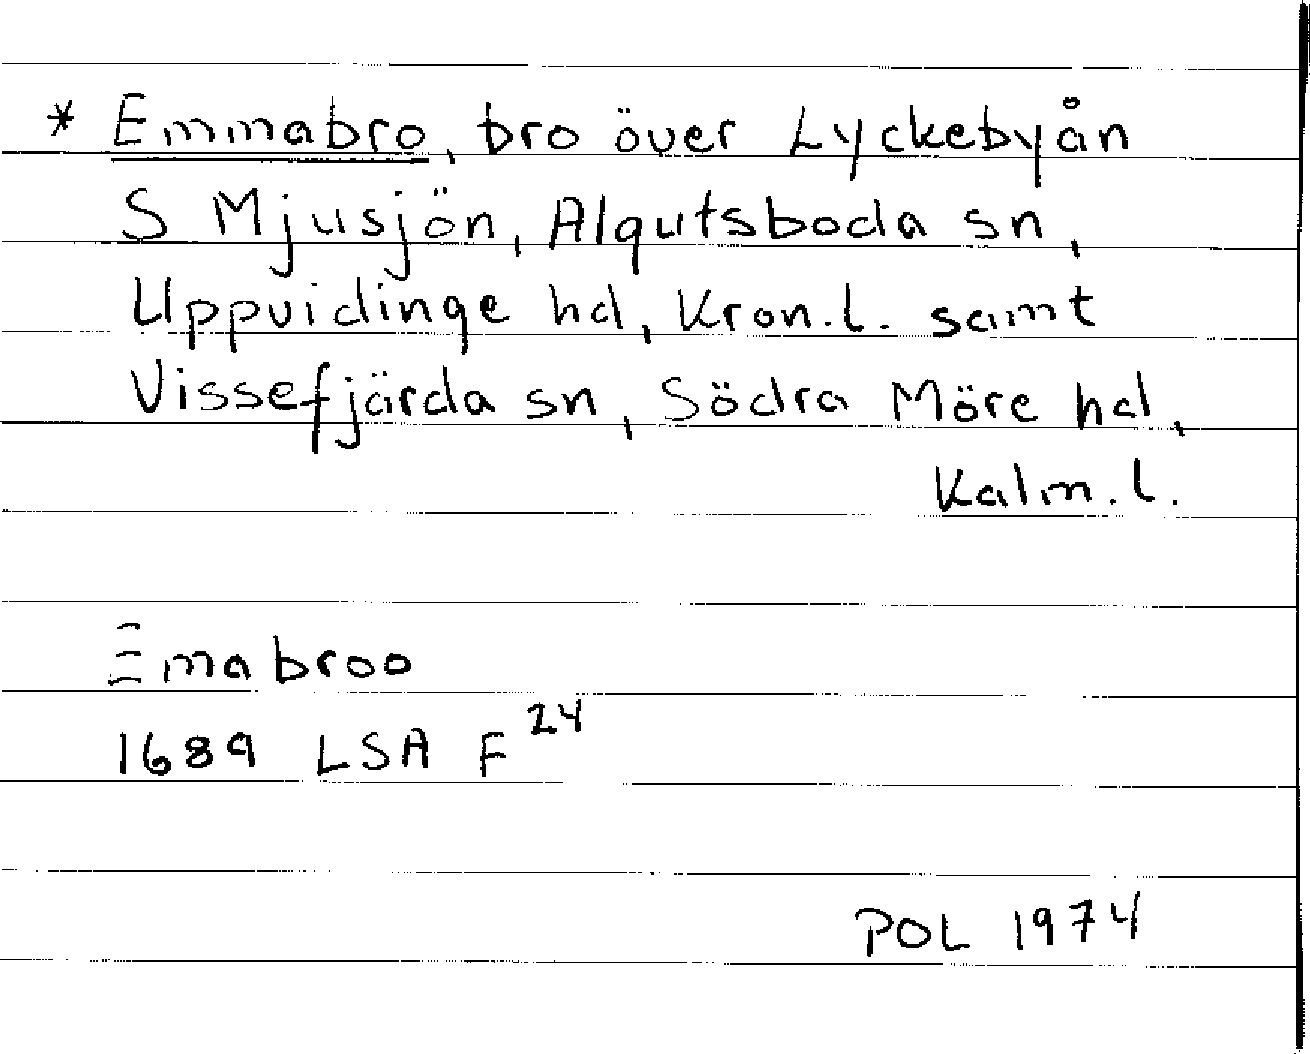 * Emmabro, bro över Lyckebyån
S Mjusjön, Algutsboda sn,
Uppvidinge hd, Kron.l. samt
Vissefjärda sn, Södra Möre hd,
Kalm.l.
Emabroo
1689 LSA F 24
POL 1974